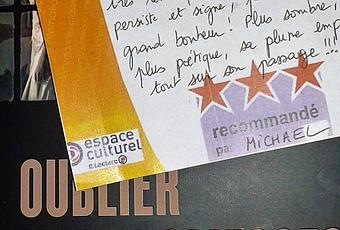 persiste et signe,
grand bonheur. Plus sombre,
plus poétique, sa plume
tout sur son passage !!!
recommandé
par MICHAEL
espace
culturel
E.Leclerc
OUBLIER